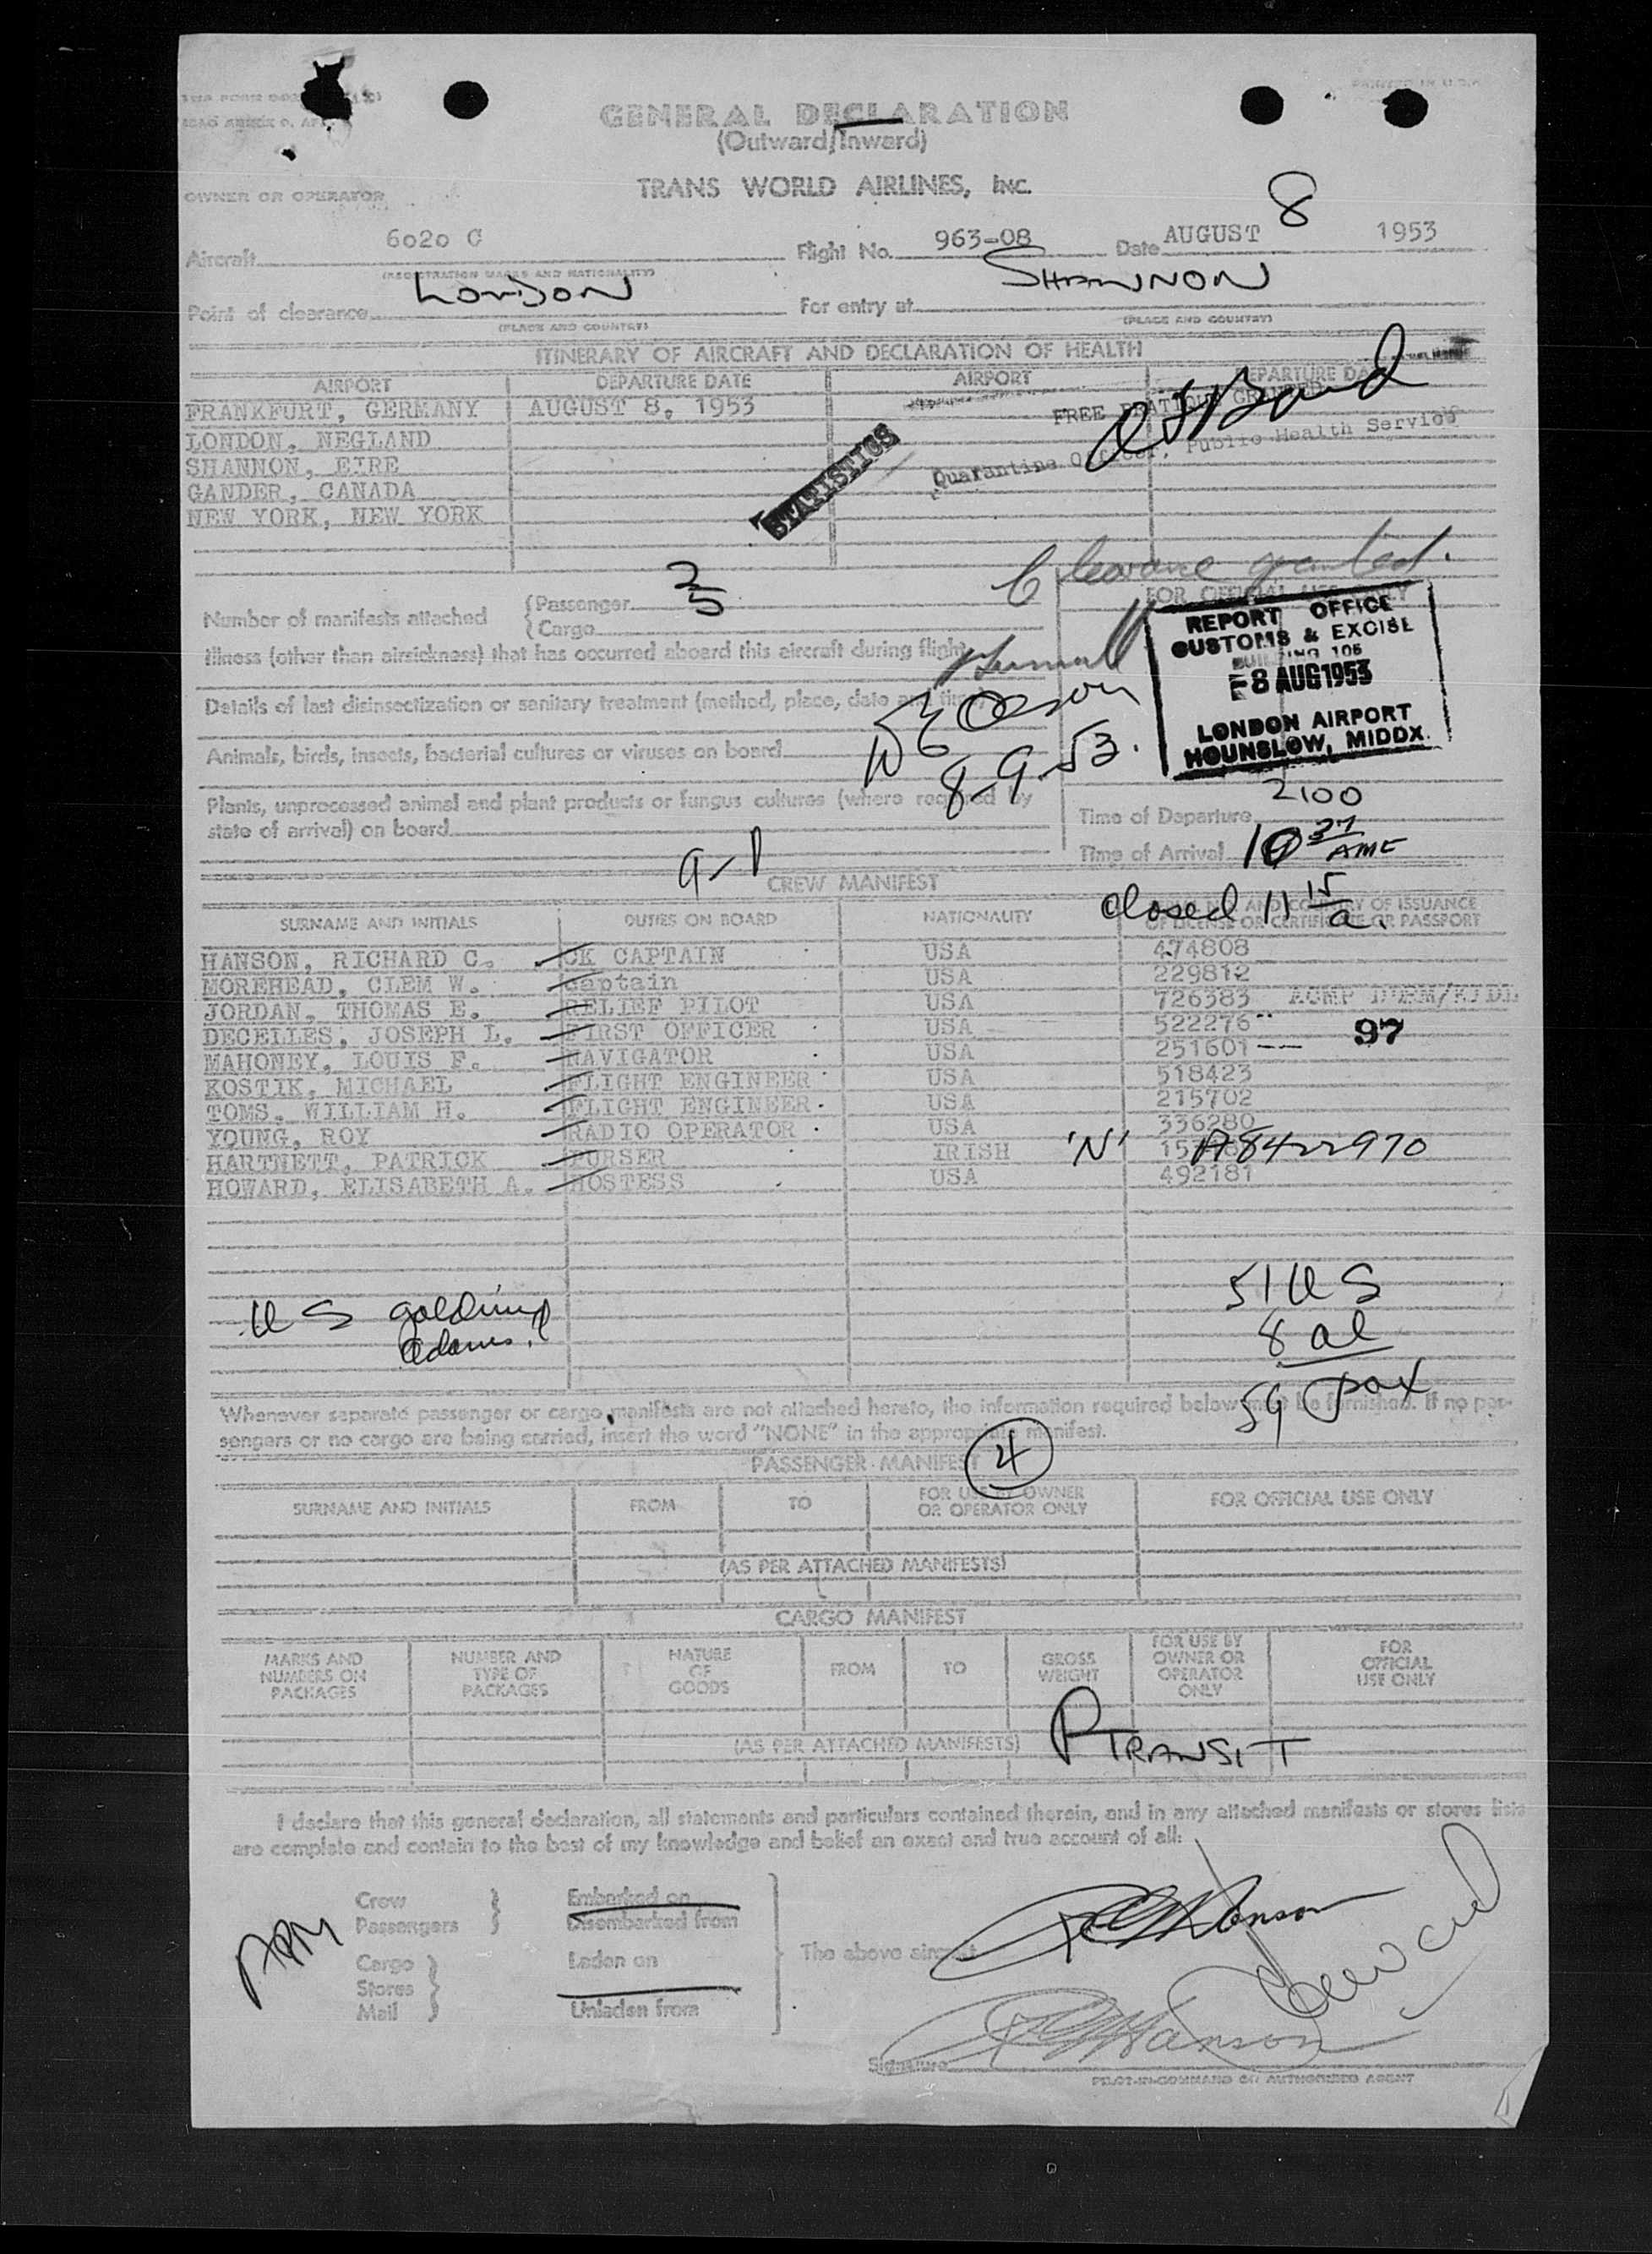 PRINTED IN U.S.A.
GENERAL DECLARATION
(Outward/Inward)
OWNER OR OPERATOR
TRANS WORLD AIRLINES, INC.
Aircraft 6020 C Flight No. 963-08 Date AUGUST 8 1953
(REGISTRATION MARKS AND NATIONALITY)
Point of clearance LONDON For entry at SHANNON
(PLACE AND COUNTRY) (PLACE AND COUNTRY)
ITINERARY OF AIRCRAFT AND DECLARATION OF HEALTH
AIRPORT DEPARTURE DATE AIRPORT DEPARTURE DATE
FRANKFURT, GERMANY AUGUST 8, 1953
FREE PRATIQUE GRANTED
LONDON, NEGLAND
Quarantine Officer, Public Health Service
SHANNON, EIRE
STATISTICS
GANDER, CANADA
NEW YORK, NEW YORK
Clearance granted.
FOR OFFICIAL USE ONLY
Number of manifests attached {Passenger 3
{Cargo 5
REPORT OFFICE
CUSTOMS & EXCISE
BUILDING 106
8 AUG 1953
LONDON AIRPORT
HOUNSLOW, MIDDX.
Illness (other than airsickness) that has occurred aboard this aircraft during flight
Details of last disinsectization or sanitary treatment (method, place, date and time)
Animals, birds, insects, bacterial cultures or viruses on board
8-9-53.
Plants, unprocessed animal and plant products or fungus cultures (where required by
state of arrival) on board
Time of Departure 2100
Time of Arrival 10 37 AME
9-1
CREW MANIFEST
closed 11 15 a.
SURNAME AND INITIALS DUTIES ON BOARD NATIONALITY AND COUNTRY OF ISSUANCE
OF LICENSE OR CERTIFICATE OR PASSPORT
HANSON, RICHARD C. CK CAPTAIN USA 474808
MOREHEAD, CLEM W. Captain USA 229812
JORDAN, THOMAS E. RELIEF PILOT USA 726383
DECELLES, JOSEPH L. FIRST OFFICER USA 522276
97
MAHONEY, LOUIS F. NAVIGATOR USA 251601
KOSTIK, MICHAEL FLIGHT ENGINEER USA 518423
TOMS, WILLIAM H. FLIGHT ENGINEER USA 215702
YOUNG, ROY RADIO OPERATOR USA 336280
HARTNETT, PATRICK PURSER IRISH 'N' A8422970
HOWARD, ELISABETH A. HOSTESS USA 492181
51 US
8 al
59 pax
US Golding
Adams
Whenever separate passenger or cargo manifests are not attached hereto, the information required below must be furnished. If no pas-
sengers or no cargo are being carried, insert the word "NONE" in the appropriate manifest.
4
PASSENGER MANIFEST
SURNAME AND INITIALS FROM TO FOR USE BY OWNER OR OPERATOR ONLY FOR OFFICIAL USE ONLY
(AS PER ATTACHED MANIFESTS)
CARGO MANIFEST
MARKS AND NUMBERS ON PACKAGES NUMBER AND TYPE OF PACKAGES NATURE OF GOODS FROM TO GROSS WEIGHT FOR USE BY OWNER OR OPERATOR ONLY FOR OFFICIAL USE ONLY
(AS PER ATTACHED MANIFESTS)
TRANSIT
I declare that this general declaration, all statements and particulars contained therein, and in any attached manifests or stores lists
are complete and contain to the best of my knowledge and belief an exact and true account of all:
Crew } Embarked on
Passengers } Disembarked from
The above aircraft
Cargo } Laden on
Stores }
Mail } Unladen from
RC Hanson
RC Hanson
Signature
PILOT-IN-COMMAND OR AUTHORIZED AGENT